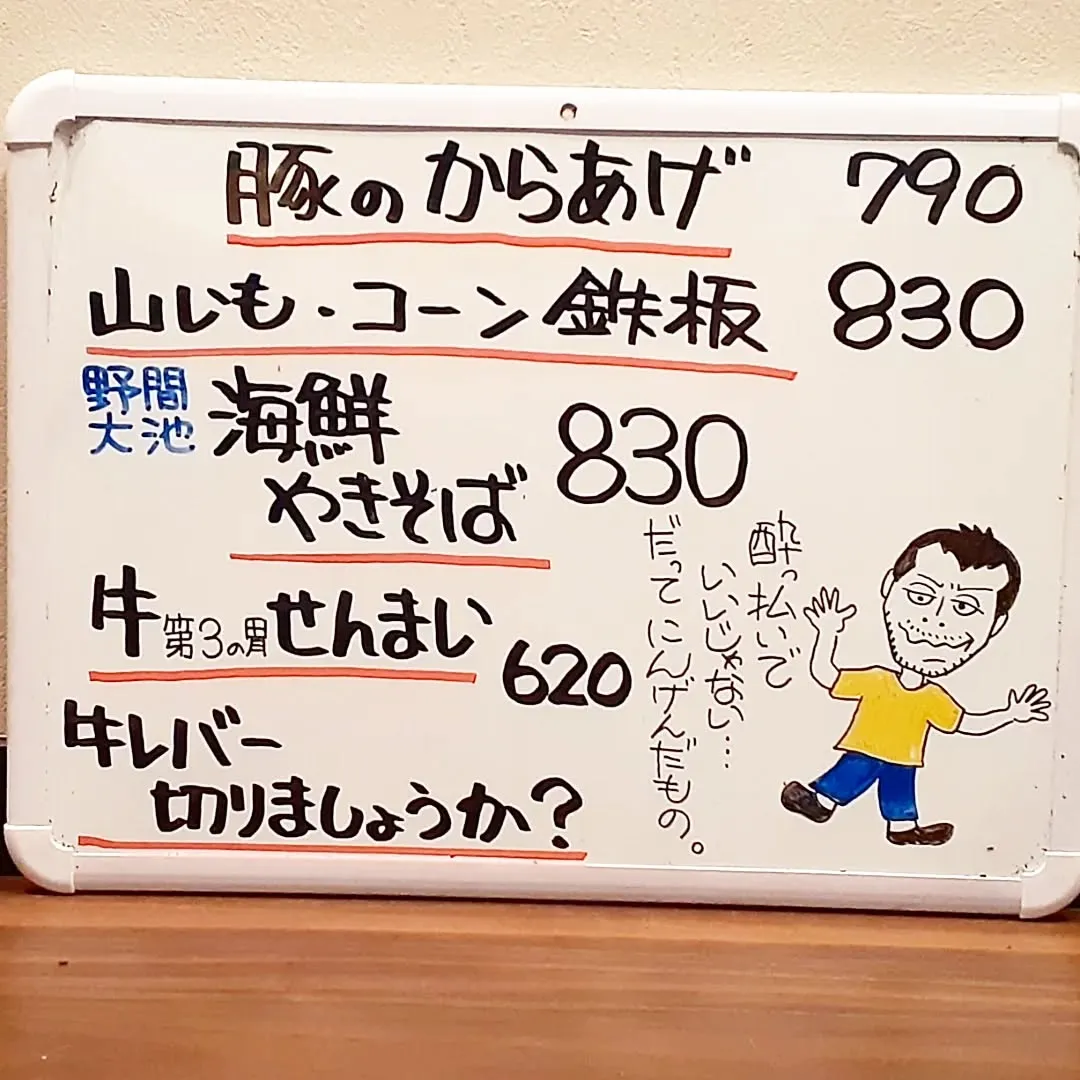 豚のからあげ 790
山いも・コーン鉄板 830
野間
大池
海鮮
やきそば 830
牛第3の胃せんまい 620
牛レバー
切りましょうか?
酔っ払いで
いいじゃない…
だってにんげんだもの。